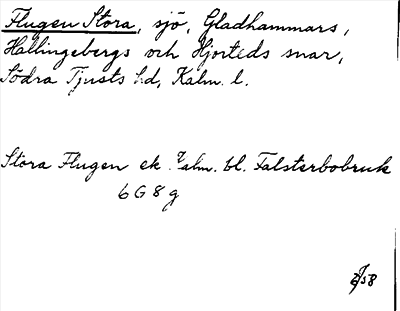 Flugen Stora, sjö, Gladhammars,
Hallingebergs och Hjorteds snar,
Södra Tjusts hd, Kalm. l.
Stora Flugen ek. Kalm. bl. Falsterbobruk
6 G 8 g